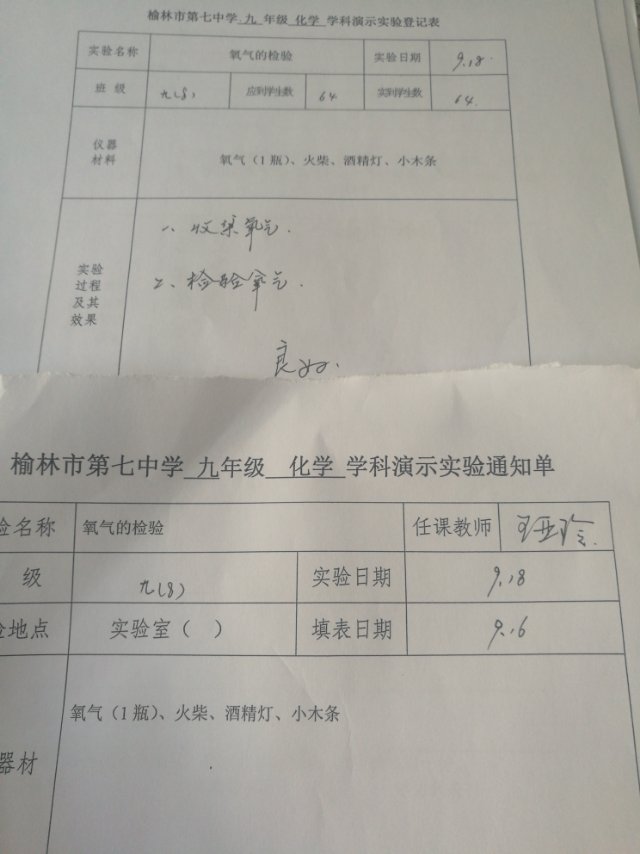 榆林市第七中学 九 年级 化学 学科演示实验登记表
实验名称 氧气的检验 实验日期 9.18.
班级 九(8) 应到学生数 64 实到学生数 64.
仪器
材料
氧气（1瓶）、火柴、酒精灯、小木条
实验
过程
及其
效果
一、收集氧气.
二、检验氧气.
良好.
榆林市第七中学 九年级 化学 学科演示实验通知单
验名称 氧气的检验 任课教师 王亚玲.
级 九(8) 实验日期 9.18
验地点 实验室（ ） 填表日期 9.16
器材 氧气（1瓶）、火柴、酒精灯、小木条